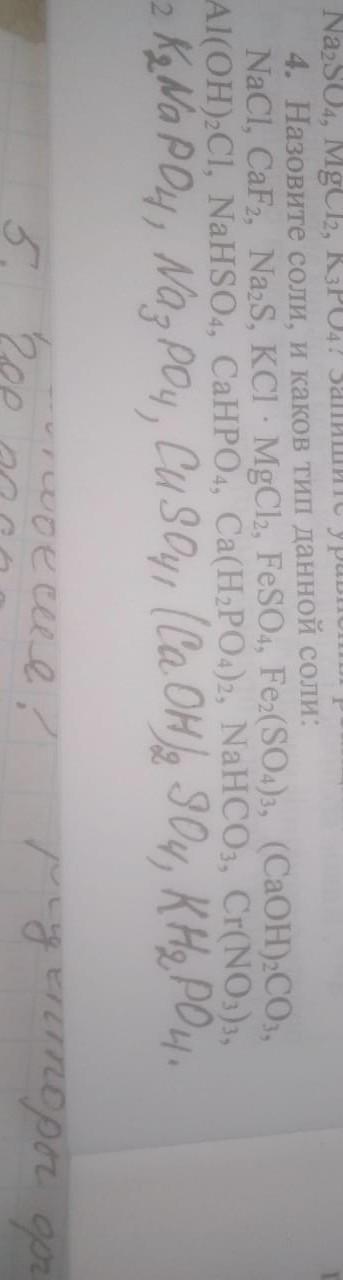 Na₂SO₄, MgCl₂, K₃PO₄? Запишите уравнения
4. Назовите соли, и каков тип данной соли:
NaCl, CaF₂, Na₂S, KCl · MgCl₂, FeSO₄, Fe₂(SO₄)₃, (CaOH)₂CO₃,
Al(OH)₂Cl, NaHSO₄, CaHPO₄, Ca(H₂PO₄)₂, NaHCO₃, Cr(NO₃)₃,
2 K₂NaPO₄, Na₃PO₄, CuSO₄, (CaOH)₂ SO₄, KH₂PO₄.
5.